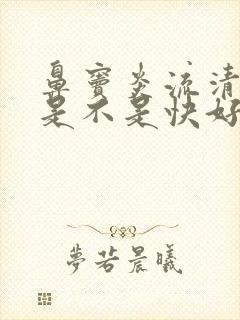 鼻窦炎流清
是不是快好
夢若晨曦